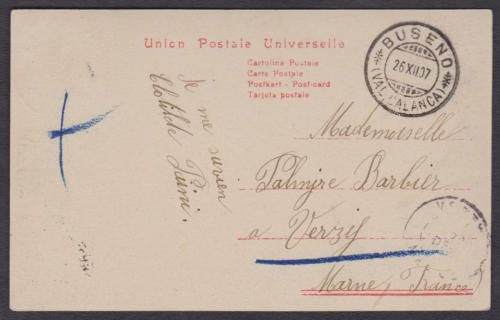 Union Postale Universelle
Cartolina Postale
Carte Postale
Postkart - Post-card
Tarjeta postale
BUSENO
26 XII 07
(VAL CALANCA)
Je me suvien
Clotilde
Mademoiselle
Palmire Barbier
a Verzy
Marne, France